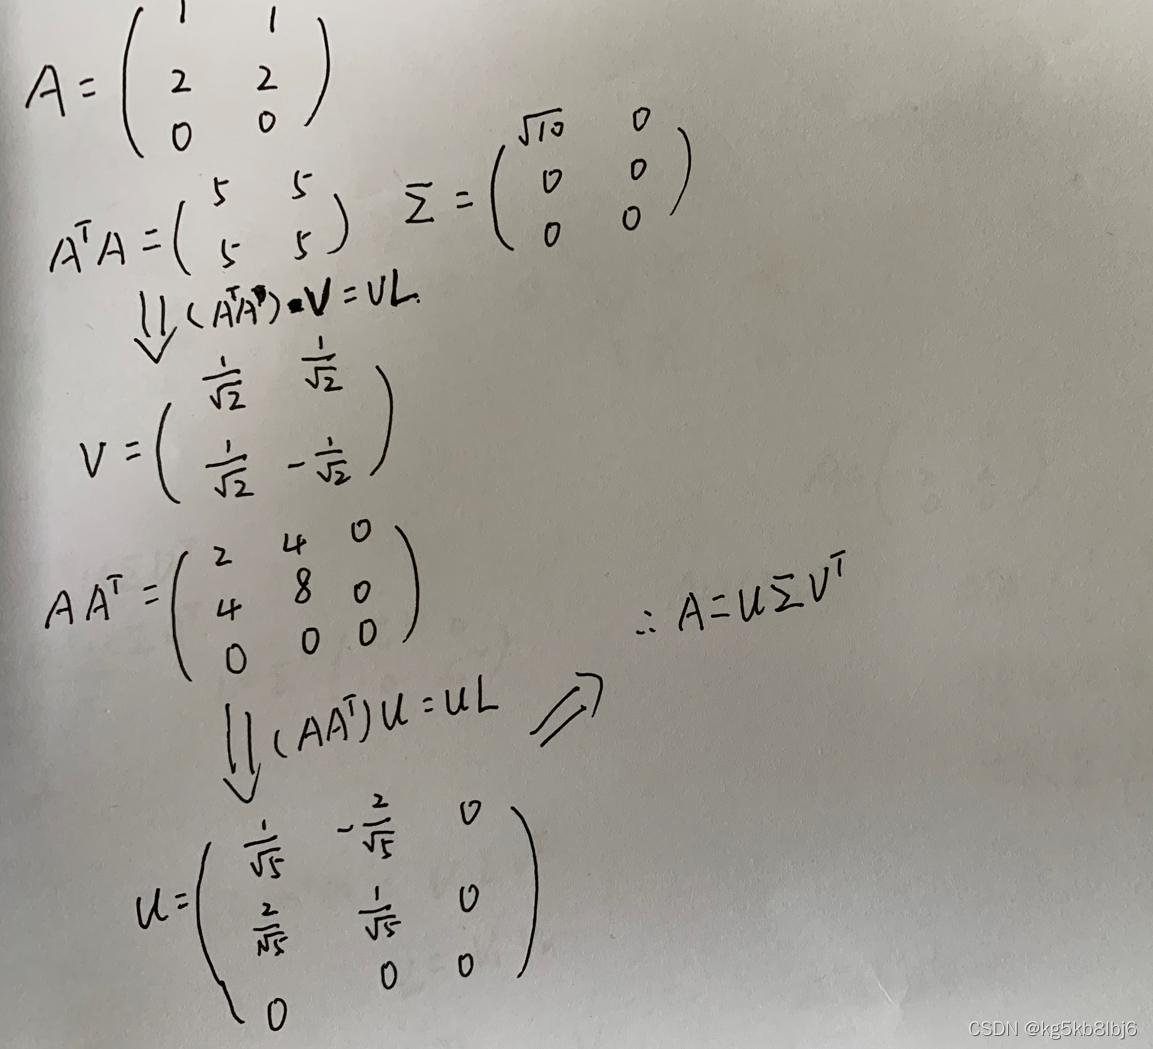 A = ( 1 1
2 2
0 0 )
AᵀA = ( 5 5
5 5 ) Σ = ( √10 0
0 0
0 0 )
⇓ (AᵀA)·V = VL.
V = ( 1/√2 1/√2
1/√2 -1/√2 )
AAᵀ = ( 2 4 0
4 8 0
0 0 0 )
∴ A = UΣVᵀ
⇓ (AAᵀ)U = UL ⇒
U = ( 1/√5 -2/√5 0
2/√5 1/√5 0
0 0 0 )
CSDN @kg5kb8lbj6